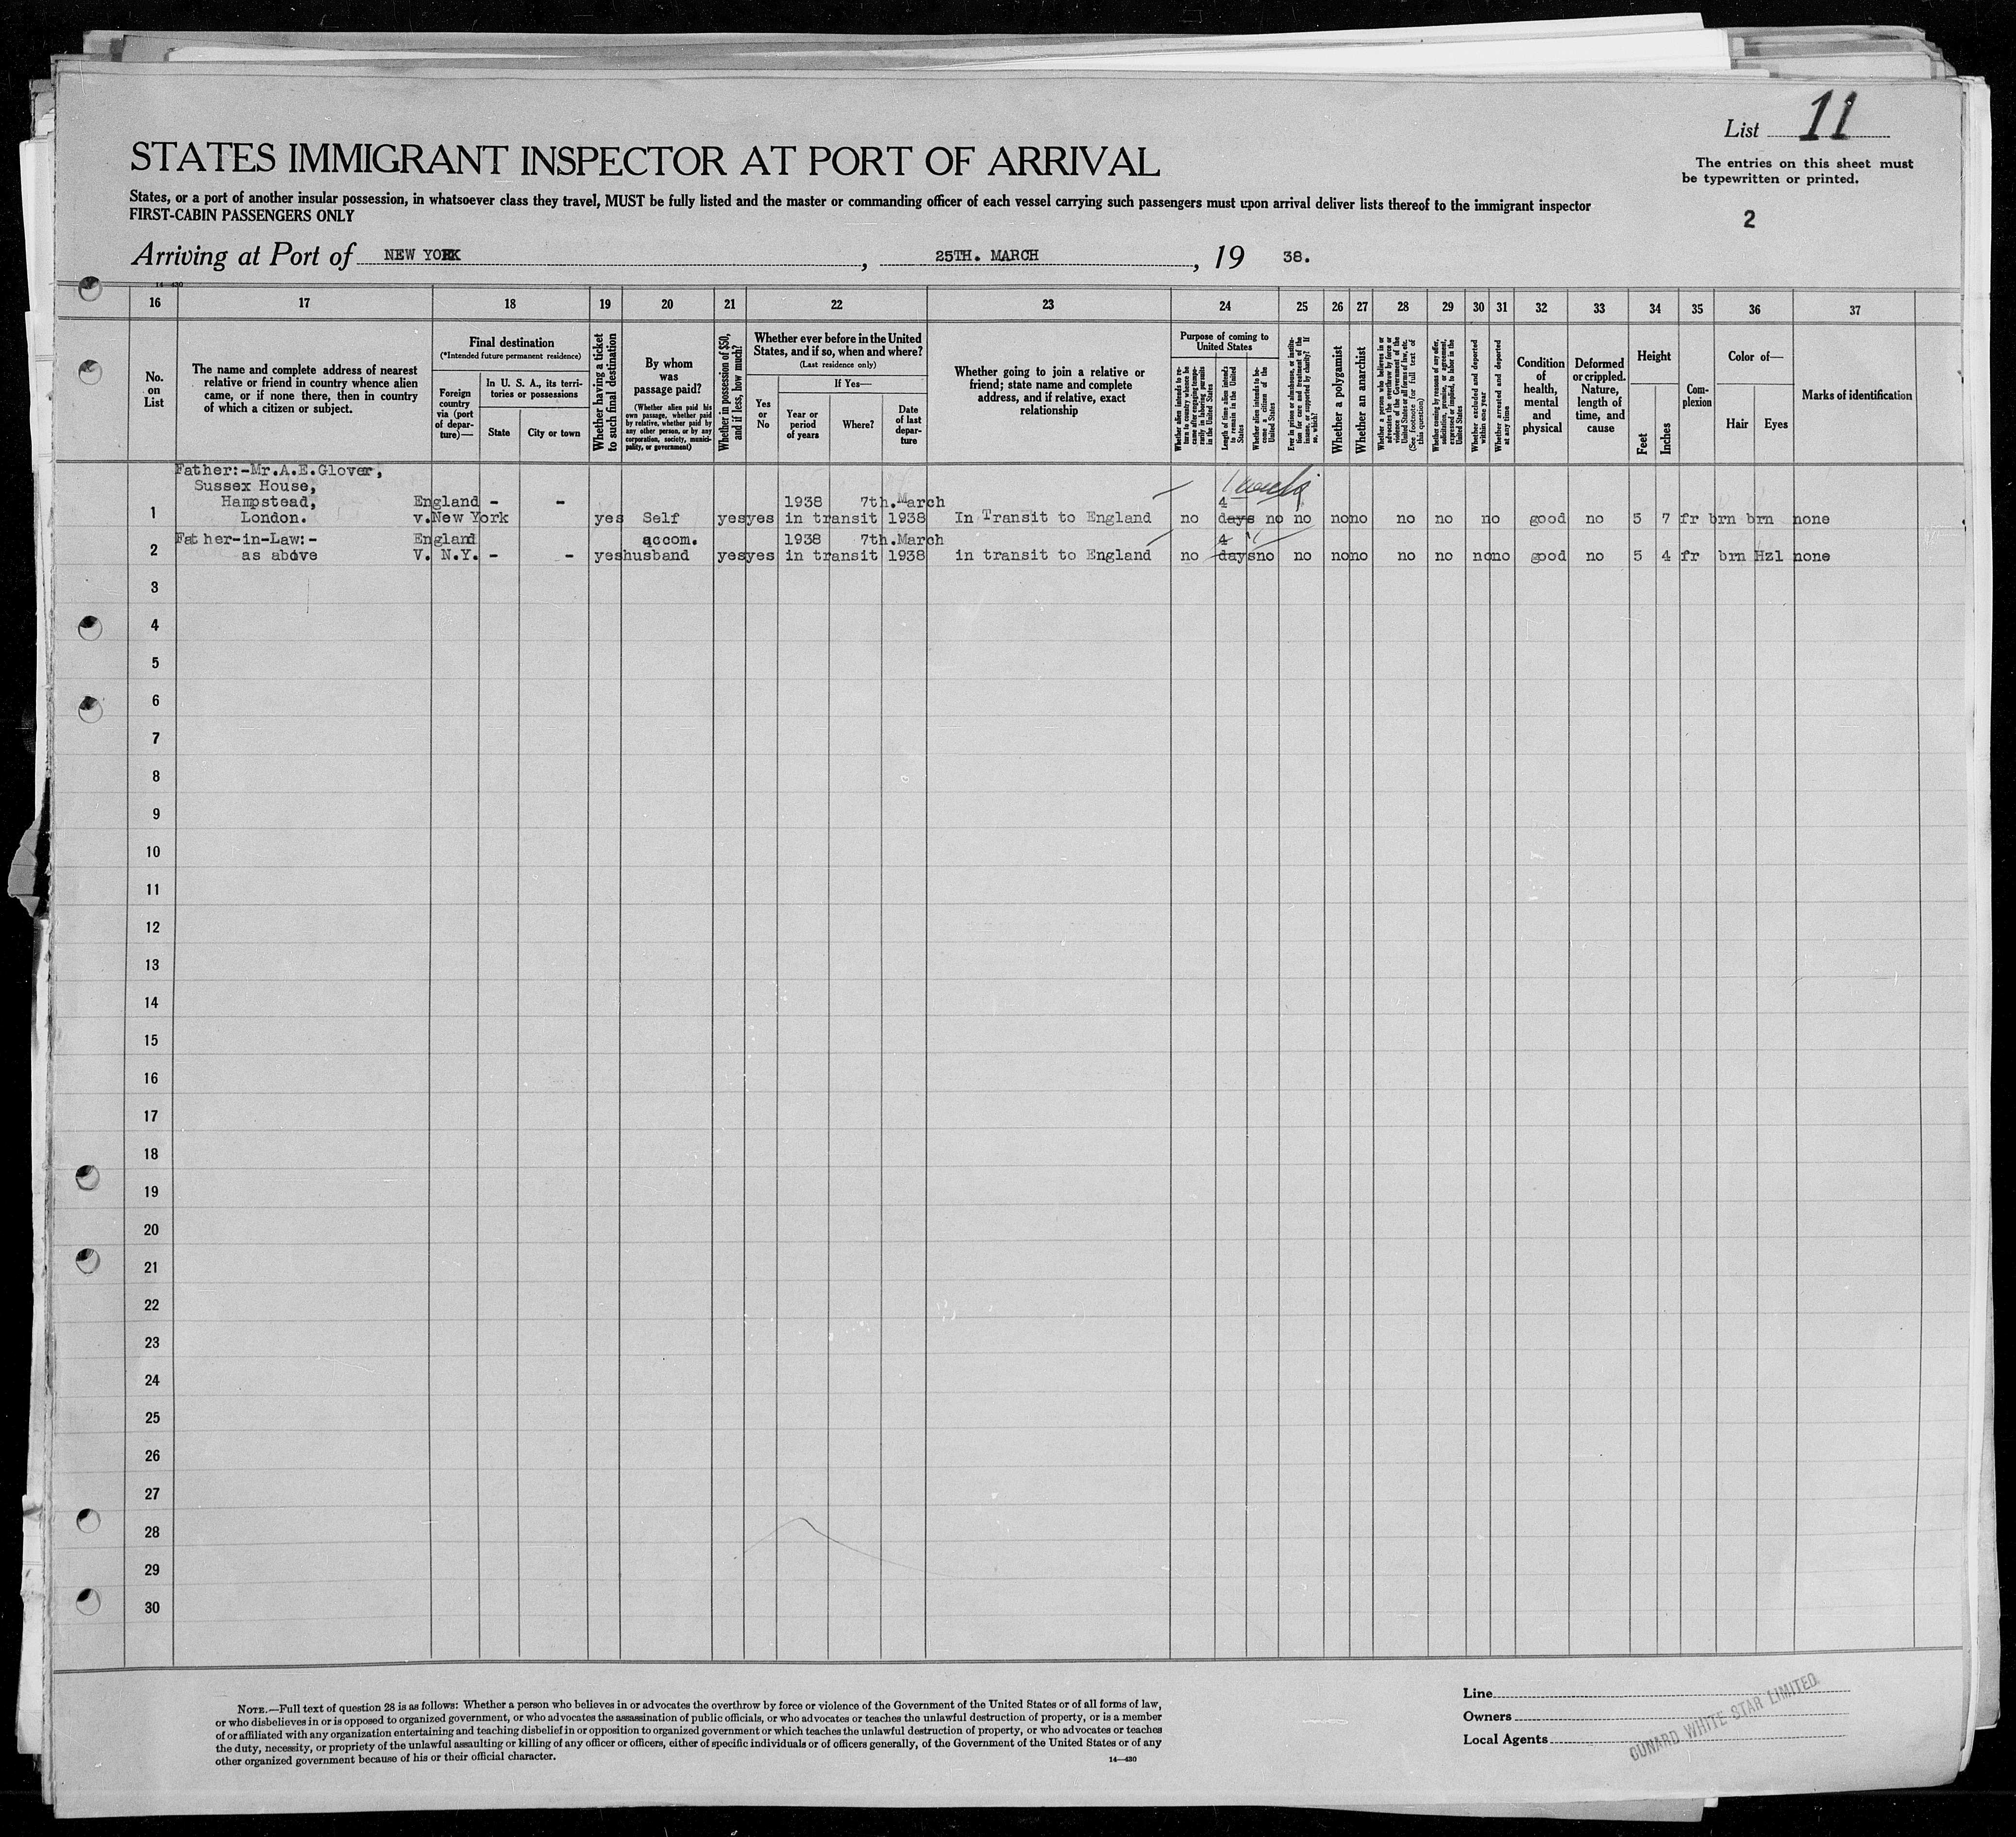 List 11
The entries on this sheet must
be typewritten or printed.
2
STATES IMMIGRANT INSPECTOR AT PORT OF ARRIVAL
States, or a port of another insular possession, in whatsoever class they travel, MUST be fully listed and the master or commanding officer of each vessel carrying such passengers must upon arrival deliver lists thereof to the immigrant inspector
FIRST-CABIN PASSENGERS ONLY
Arriving at Port of NEW YORK, 25TH. MARCH, 19 38.
14—430
16 17 18 19 20 21 22 23 24 25 26 27 28 29 30 31 32 33 34 35 36 37
No.
on
List
The name and complete address of nearest
relative or friend in country whence alien
came, or if none there, then in country
of which a citizen or subject.
Final destination
(*Intended future permanent residence)
Foreign
country
via (port
of depar-
ture)—
In U. S. A., its terri-
tories or possessions
State
City or town
Whether having a ticket
to such final destination
By whom
was
passage paid?
(Whether alien paid his
own passage, whether paid
by relative, whether paid by
any other person, or by any
corporation, society, munici-
pality, or government)
Whether in possession of $50,
and if less, how much?
Whether ever before in the United
States, and if so, when and where?
(Last residence only)
If Yes—
Yes
or
No
Year or
period
of years
Where?
Date
of last
depar-
ture
Whether going to join a relative or
friend; state name and complete
address, and if relative, exact
relationship
Purpose of coming to
United States
Whether alien intends to re-
turn to country whence he
came after engaging tempo-
rarily in laboring pursuits
in the United States
Length of time alien intends
to remain in the United
States
Whether alien intends to be-
come a citizen of the
United States
Ever in prison or almshouse, or institu-
tion for care and treatment of the
insane, or supported by charity? If
so, which?
Whether a polygamist
Whether an anarchist
Whether a person who believes in or
advocates the overthrow by force or
violence of the Government of the
United States or all forms of law, etc.
(See footnote for full text of
this question)
Whether coming by reasons of any offer,
solicitation, promise, or agreement,
expressed or implied, to labor in the
United States
Whether excluded and deported
within one year
Whether arrested and deported
at any time
Condition
of
health,
mental
and
physical
Deformed
or crippled.
Nature,
length of
time, and
cause
Height
Feet
Inches
Com-
plexion
Color of—
Hair
Eyes
Marks of identification
Father:-Mr.A.E.Glover,
Sussex House,
1 week
Hampstead, England - - 1938 7th.March 4
1 London. v.New York yes Self yes yes in transit 1938 In Transit to England no days no no no no no no no good no 5 7 fr brn brn none
Father-in-Law:- England accom. 1938 7th.March 4 "
2 as above V. N.Y. - - yes husband yes yes in transit 1938 in transit to England no days no no no no no no no no good no 5 4 fr brn Hzl none
3
4
5
6
7
8
9
10
11
12
13
14
15
16
17
18
19
20
21
22
23
24
25
26
27
28
29
30
NOTE.—Full text of question 28 is as follows: Whether a person who believes in or advocates the overthrow by force or violence of the Government of the United States or of all forms of law,
or who disbelieves in or is opposed to organized government, or who advocates the assassination of public officials, or who advocates or teaches the unlawful destruction of property, or is a member
of or affiliated with any organization entertaining and teaching disbelief in or opposition to organized government or which teaches the unlawful destruction of property, or who advocates or teaches
the duty, necessity, or propriety of the unlawful assaulting or killing of any officer or officers, either of specific individuals or of officers generally, of the Government of the United States or of any
other organized government because of his or their official character.
14—430
Line
Owners
Local Agents
CUNARD WHITE STAR LIMITED